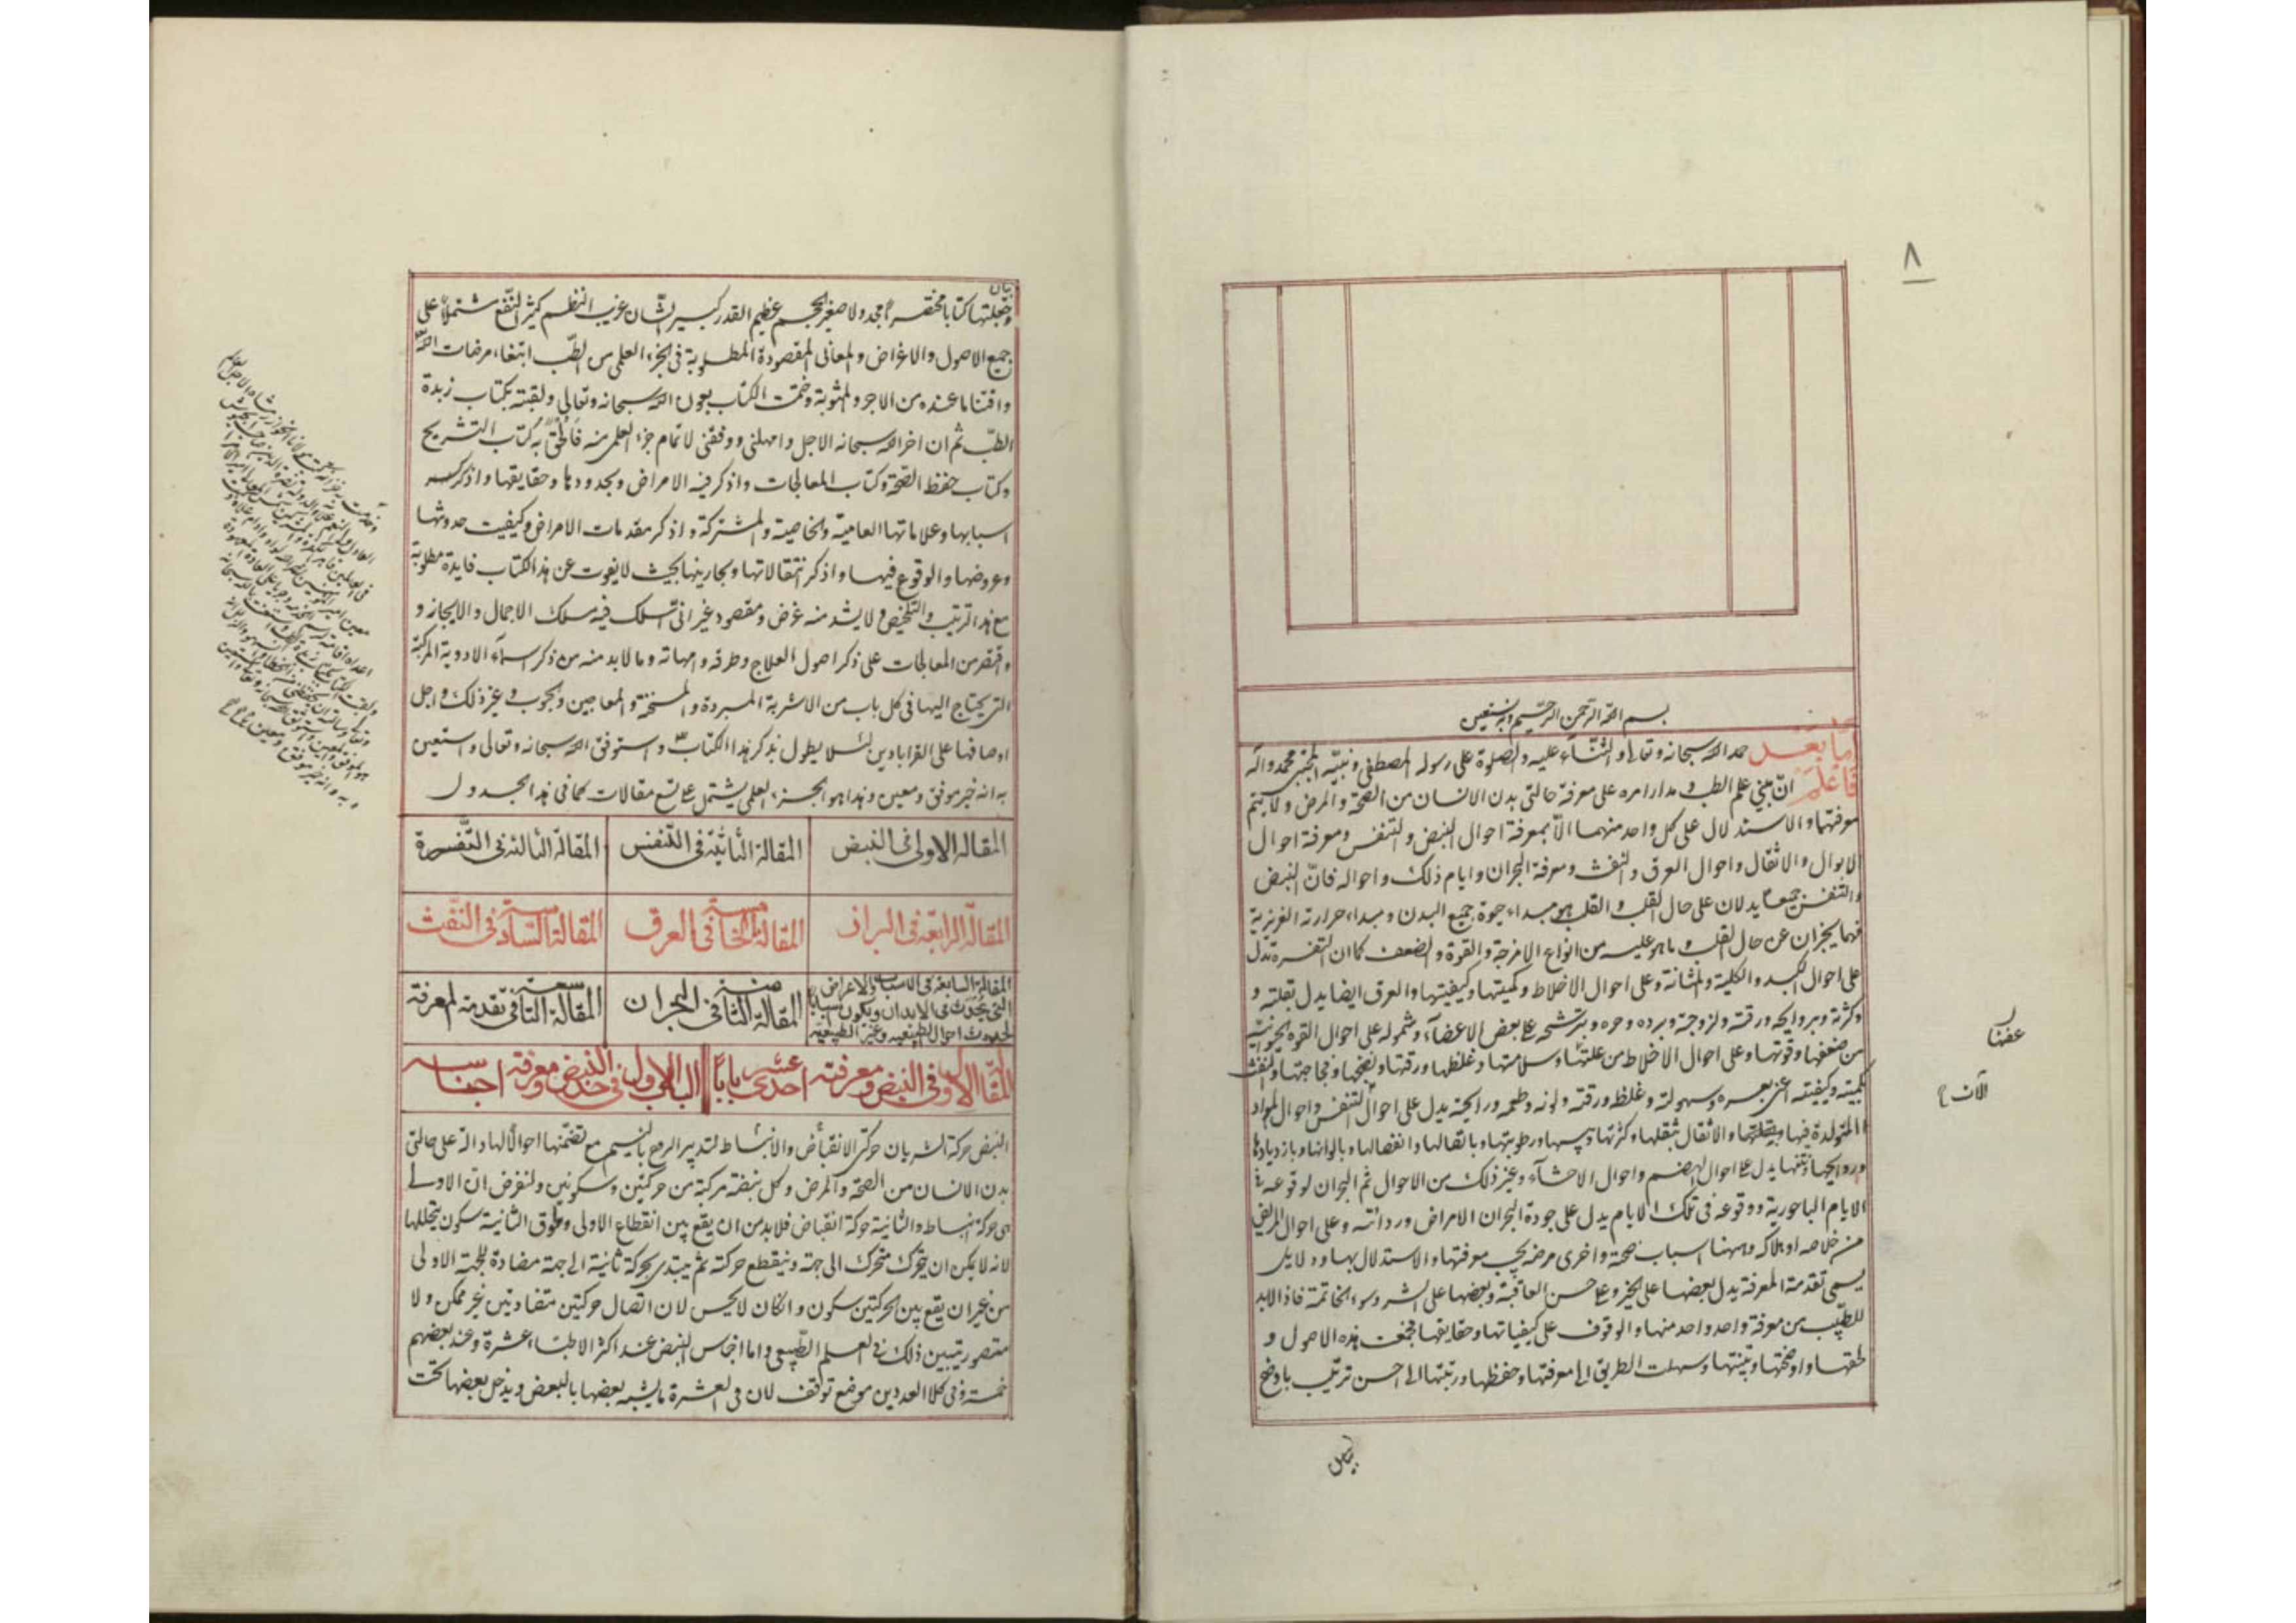 ٨
بسم الله الرحمن الرحيم وبه نستعين
أما بعد حمد الله سبحانه وتعالى والثناء عليه والصلوة على رسوله المصطفى ونبيه المجتبى محمد وآله
فاعلم ان مبنى علم الطب ومدار امره على معرفة حالتى بدن الانسان من الصحة والمرض ولا يتم
معرفتها والاستدلال على كل واحد منهما الا بمعرفة احوال النبض والتنفس ومعرفة احوال
الابوال والاثقال واحوال العرق والنفث ومعرفة البحران وايام ذلك واحواله فان النبض
والتنفس جميعا يدلان على حال القلب والقلب هو مبداء حيوة جميع البدن ومبداء حرارته الغريزية
فهما يخبران عن حال القلب وما هو عليه من انواع الامزجة والقوة والضعف كما ان التفسرة تدل
على احوال الكبد والكلية والمثانة وعلى احوال الاخلاط وكميتها وكيفيتها والعرق ايضا يدل بقلته و
وكثرته وبروايحه ورقته ولزوجته وبرده وحره وبترشحه على بعض الاعضاء وشموله على احوال القوة الحيوانية
من ضعفها وقوتها وعلى احوال الاخلاط من علتها وسلامتها وغلظها ورقتها ونضجها وفجاجتها والنفث
بكميته وكيفيته اعنى بعسره وسهولته وغلظ ورقته ولونه وطعمه ورايحته يدل على احوال التنفس واحوال المواد
المتولدة فيها والاثقال بثقلها وكثرتها ويبسها ورطوبتها وبانفصالها وبالوانها وبازديادها
وروايحها ونتنها يدل على احوال الهضم واحوال الاحشاء وغير ذلك من الاحوال ثم البحران لوقوعه فى
الايام الباحورية ووقوعه فى تلك الايام يدل على جودة البحران الامراض وردائته وعلى احوال المريض
من خلاصه او هلاكه وههنا اسباب صحة واخرى مرضه يجب معرفتها والاستدلال بها ودلايل
يسمى تقدمة المعرفة يدل بعضها على الخير وعلى حسن العاقبة وبعضها على الشر وسوء الخاتمة فاذا لابد
للطبيب من معرفة واحد واحد منها والوقوف على كيفياتها وحقايقها فجمعت هذه الاصول و
لحقتها واوضحتها وبينتها وسهلت الطريق الى معرفتها وحفظها ورتبتها الى احسن ترتيب باوضح
بيان
الآن
بيان
وجعلتها كتابا مختصرا مجدولا صغير الحجم عظيم القدر كبير الشان غريب النظم كثير النفع مشتملا على
جميع الاصول والاغراض والمعانى المقصودة المطلوبة فى الجزء العلمى من الطب ابتغاء مرضات الله
واقتنا ما عنده من الاجر والمثوبة وختمت الكتاب بعون الله سبحانه وتعالى ولقبته بكتاب زبدة
الطب ثم ان اخر الله سبحانه الاجل وامهلنى ووفقنى لاتمام جزء العلمى منه فألحق به كتاب التشريح
وكتاب حفظ الصحة وكتاب المعالجات واذكر فيه الامراض وبحدودها وحقايقها واذكر
اسبابها وعلاماتها العامية والخاصية والمشتركة واذكر مقدمات الامراض وكيفيت حدوثها
وعروضها والوقوع فيها واذكر انتقالاتها وبحارينها بحيث لا يفوت عن هذا الكتاب فايدة مطلوبة
مع هذا الترتيب والتلخيص ولا يشد منه غرض ومقصود غير انى اسلك فيه مسلك الاجمال والايجاز و
واقتصر من المعالجات على ذكر اصول العلاج وطرقه وامهاته وما لابد منه من ذكر اسماء الادوية المركبة
التى يحتاج اليها فى كل باب من الاشربة المبردة والمسخنة والمعاجين والحبوب وغير ذلك واحيل
اوصافها على القرابادين لئلا يطول بذكر هذا الكتاب واستوفق الله سبحانه وتعالى واستعين
به انه خير موفق ومعين وهذا هو الجزء العلمى يشتمل على تسع مقالات كما فى هذا الجدول
المقالة الاولى فى النبض المقالة الثانية فى التنفس المقالة الثالثة فى التفسرة
المقالة الرابعة فى البراز المقالة الخامسة فى العرق المقالة السادسة فى النفث
المقالة السابعة فى الاسباب والاعراض التى يحدث فى الابدان ويكون اسبابا لحدوث احوال الطبيعية وغير الطبيعية المقالة الثامنة فى البحران المقالة التاسعة فى تقدمة المعرفة
المقالة الاولى فى النبض ومعرفته احدى عشر بابا الباب الاول فى حد النبض ومعرفة اجناسه
النبض حركة الشريان حركتى الانقباض والانبساط لتدبير الروح بالنسيم مع تضمنها احوالا لها دالة على حالتى
بدن الانسان من الصحة والمرض وكل نبضة مركبة من حركتين وسكونين ولنفرض ان الاولى
هى حركة انبساط والثانية حركة انقباض فلابد من ان يقع بين انقطاع الاولى وطروق الثانية سكون يتخللها
لانه لا يمكن ان يتحرك متحرك الى جهة وينقطع حركته ثم يبتدى بحركة ثانية الى جهة مضادة للجهة الاولى
من غير ان يقع بين الحركتين سكون وان كان لا يحس لان اتصال حركتين متضادتين غير ممكن ولا
متصور يتبين ذلك فى العلم الطبيعى واما اجناس النبض عند اكثر الاطباء عشرة وعند بعضهم
خمسة وفى كلا العددين موضع توقف لان فى العشرة ما يشبه بعضها بالبعض ويدخل بعضها تحت